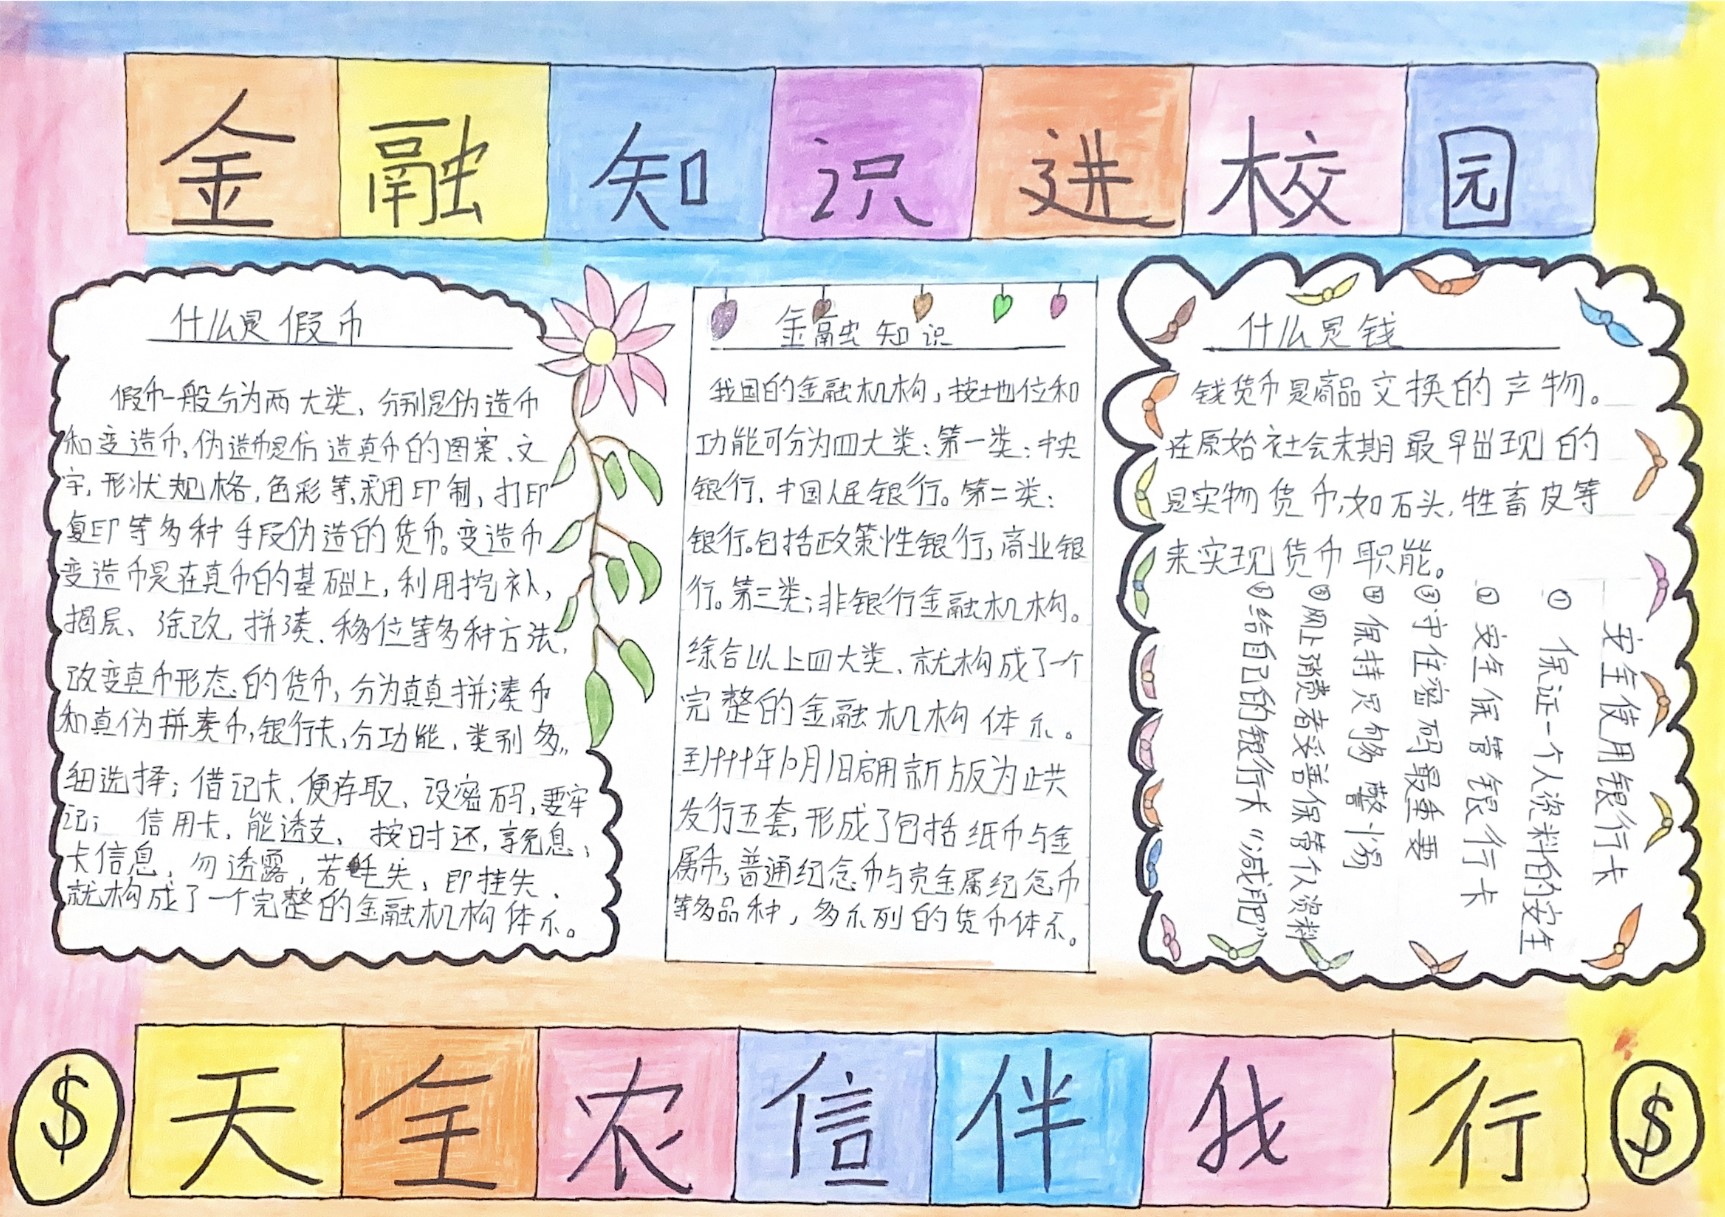 金融知识进校园
什么是假币
假币一般分为两大类、分别是伪造币
和变造币,伪造币是仿造真币的图案、文
字,形状规格,色彩等,采用印制,打印
复印等多种手段伪造的货币。变造币
变造币是在真币的基础上,利用挖补,
揭层、涂改,拼凑、移位等多种方法,
改变真币形态的货币,分为真真拼凑币
和真伪拼凑币,银行卡,分功能、类别多,
细选择;借记卡、便存取、设密码,要牢
记; 信用卡,能透支、按时还,享免息;
卡信息,勿透露,若丢失,即挂失、
就构成了一个完整的金融机构体系。
金融知识
我国的金融机构,按地位和
功能可分为四大类:第一类:中央
银行,中国人民银行。第二类:
银行。包括政策性银行,商业银
行。第三类:非银行金融机构。
综合以上四大类、就构成了一个
完整的金融机构体系。
至1999年10月1日启用新版为止共
发行五套,形成了包括纸币与金
属币,普通纪念币与贵金属纪念币
等多品种,多系列的货币体系。
什么是钱
钱货币是商品交换的产物。
在原始社会末期最早出现的
是实物货币,如石头,牲畜皮等
来实现货币职能。
安全使用银行卡
① 保证一个人资料的安全
② 安全保管银行卡
③守住密码最重要
④ 保持足够警惕
⑤网上消费者妥善保管个人资料
⑥给自己的银行卡“减肥”
天全农信伴我行
$
$